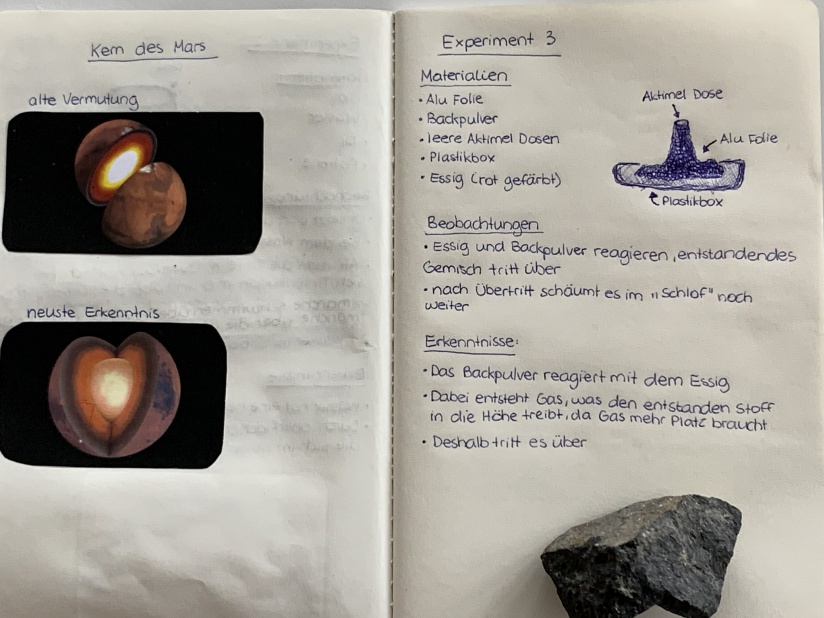 Kern des Mars
alte Vermutung
neuste Erkenntnis
Experiment 3
Materialien
• Alu Folie
• Backpulver
• leere Aktimel Dosen
• Plastikbox
• Essig (rot gefärbt)
Aktimel Dose
Alu Folie
Plastikbox
Beobachtungen
• Essig und Backpulver reagieren, entstandendes
Gemisch tritt über
• nach Übertritt schäumt es im "Schlof" noch
weiter
Erkenntnisse:
• Das Backpulver reagiert mit dem Essig
• Dabei entsteht Gas, was den entstanden Stoff
in die Höhe treibt, da Gas mehr Platz braucht
• Deshalb tritt es über